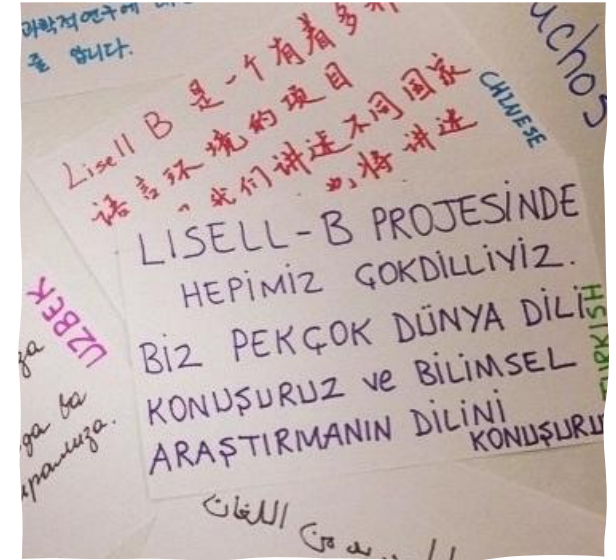 과학적 연구에
줄 압니다.
uchos
Lisell B 是一个有着多
语言环境的项目
我们讲述不同国家
将讲述
CHINESE
LISELL-B PROJESİNDE
HEPİMİZ ÇOKDİLLİYİZ.
BİZ PEKÇOK DÜNYA DİLİ
KONUŞURUZ ve BİLİMSEL
ARAŞTIRMANIN DİLİNİ
KONUŞURU
TURKISH
UZBEK
za
da ba
من اللغات